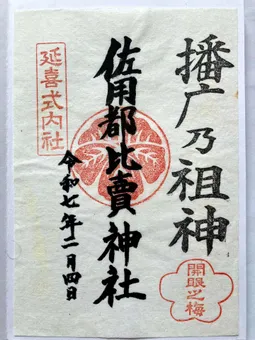 播广乃祖神
開眼之梅
佐用都比賣神社
延喜式内社
令和七年二月四日